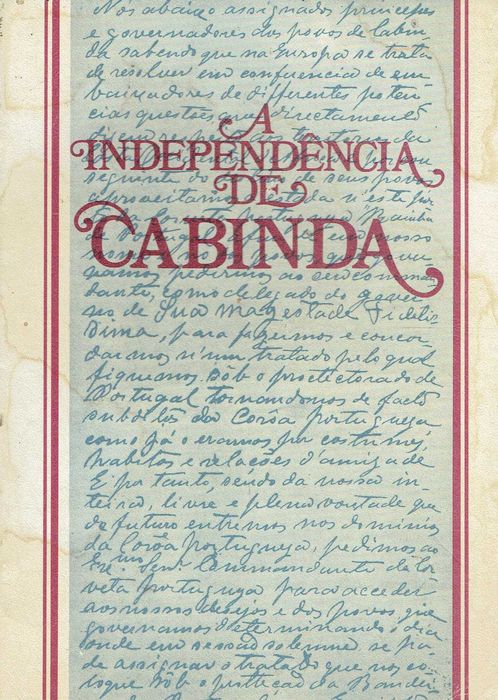 A
INDEPENDÊNCIA
DE
CABINDA
Nós abaixo assignados, principes
e governadores dos povos de Cabin
da sabendo que na Europa se trata
de resolver em conferencia de em
baixadores de differentes poten
cias questões que directamente
dizem respeito aos
seus povos
aproveitamos n'este
de Portugal nosso
namos, pedirmos ao seu comman
dante, como delegado do gover
no de Sua Magestade Fidelis
sima, para fazermos e concor
darmos n'um tratado pelo qual
fiquemos sob o protectorado de
Portugal tornando-nos de facto
subditos da Corôa portugueza
como já o eramos por costumes,
habitos e relações d'amizade
E portanto, sendo da nossa in
teira, livre e plena vontade que
de futuro entremos nos dominios
da Corôa portugueza, pedimos ao
Exmo. Snr. Commandante da Cor
veta portugueza para acceder
aos nossos desejos e dos povos que
governamos determinando o dia
onde em sessão solemne se ha
de assignar o tratado que nos co
loque sob a protecção da Bandei